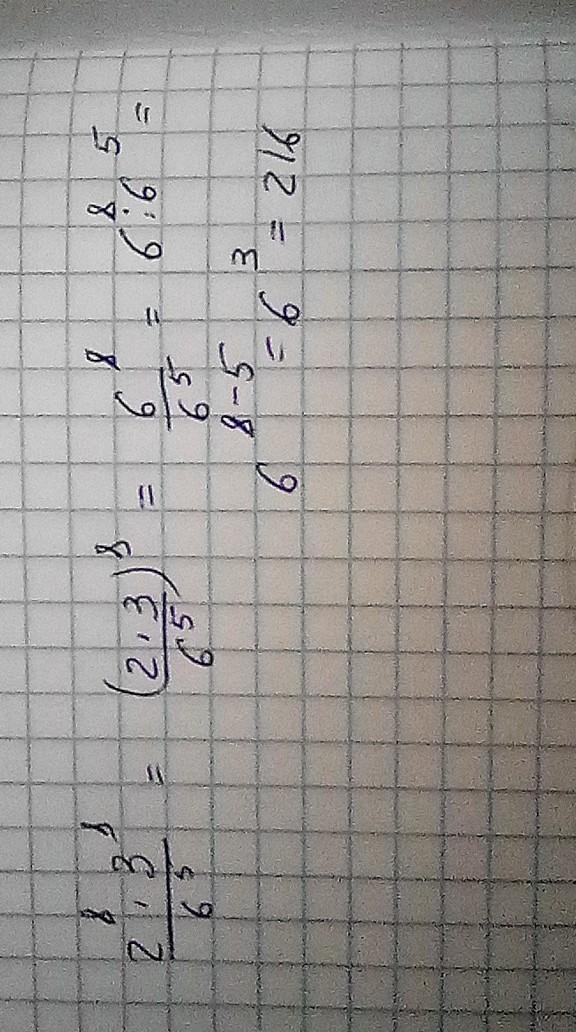 2⁸ · 3⁸ / 6⁵ = (2 · 3)⁸ / 6⁵ = 6⁸ / 6⁵ = 6⁸ : 6⁵ =
6⁸⁻⁵ = 6³ = 216